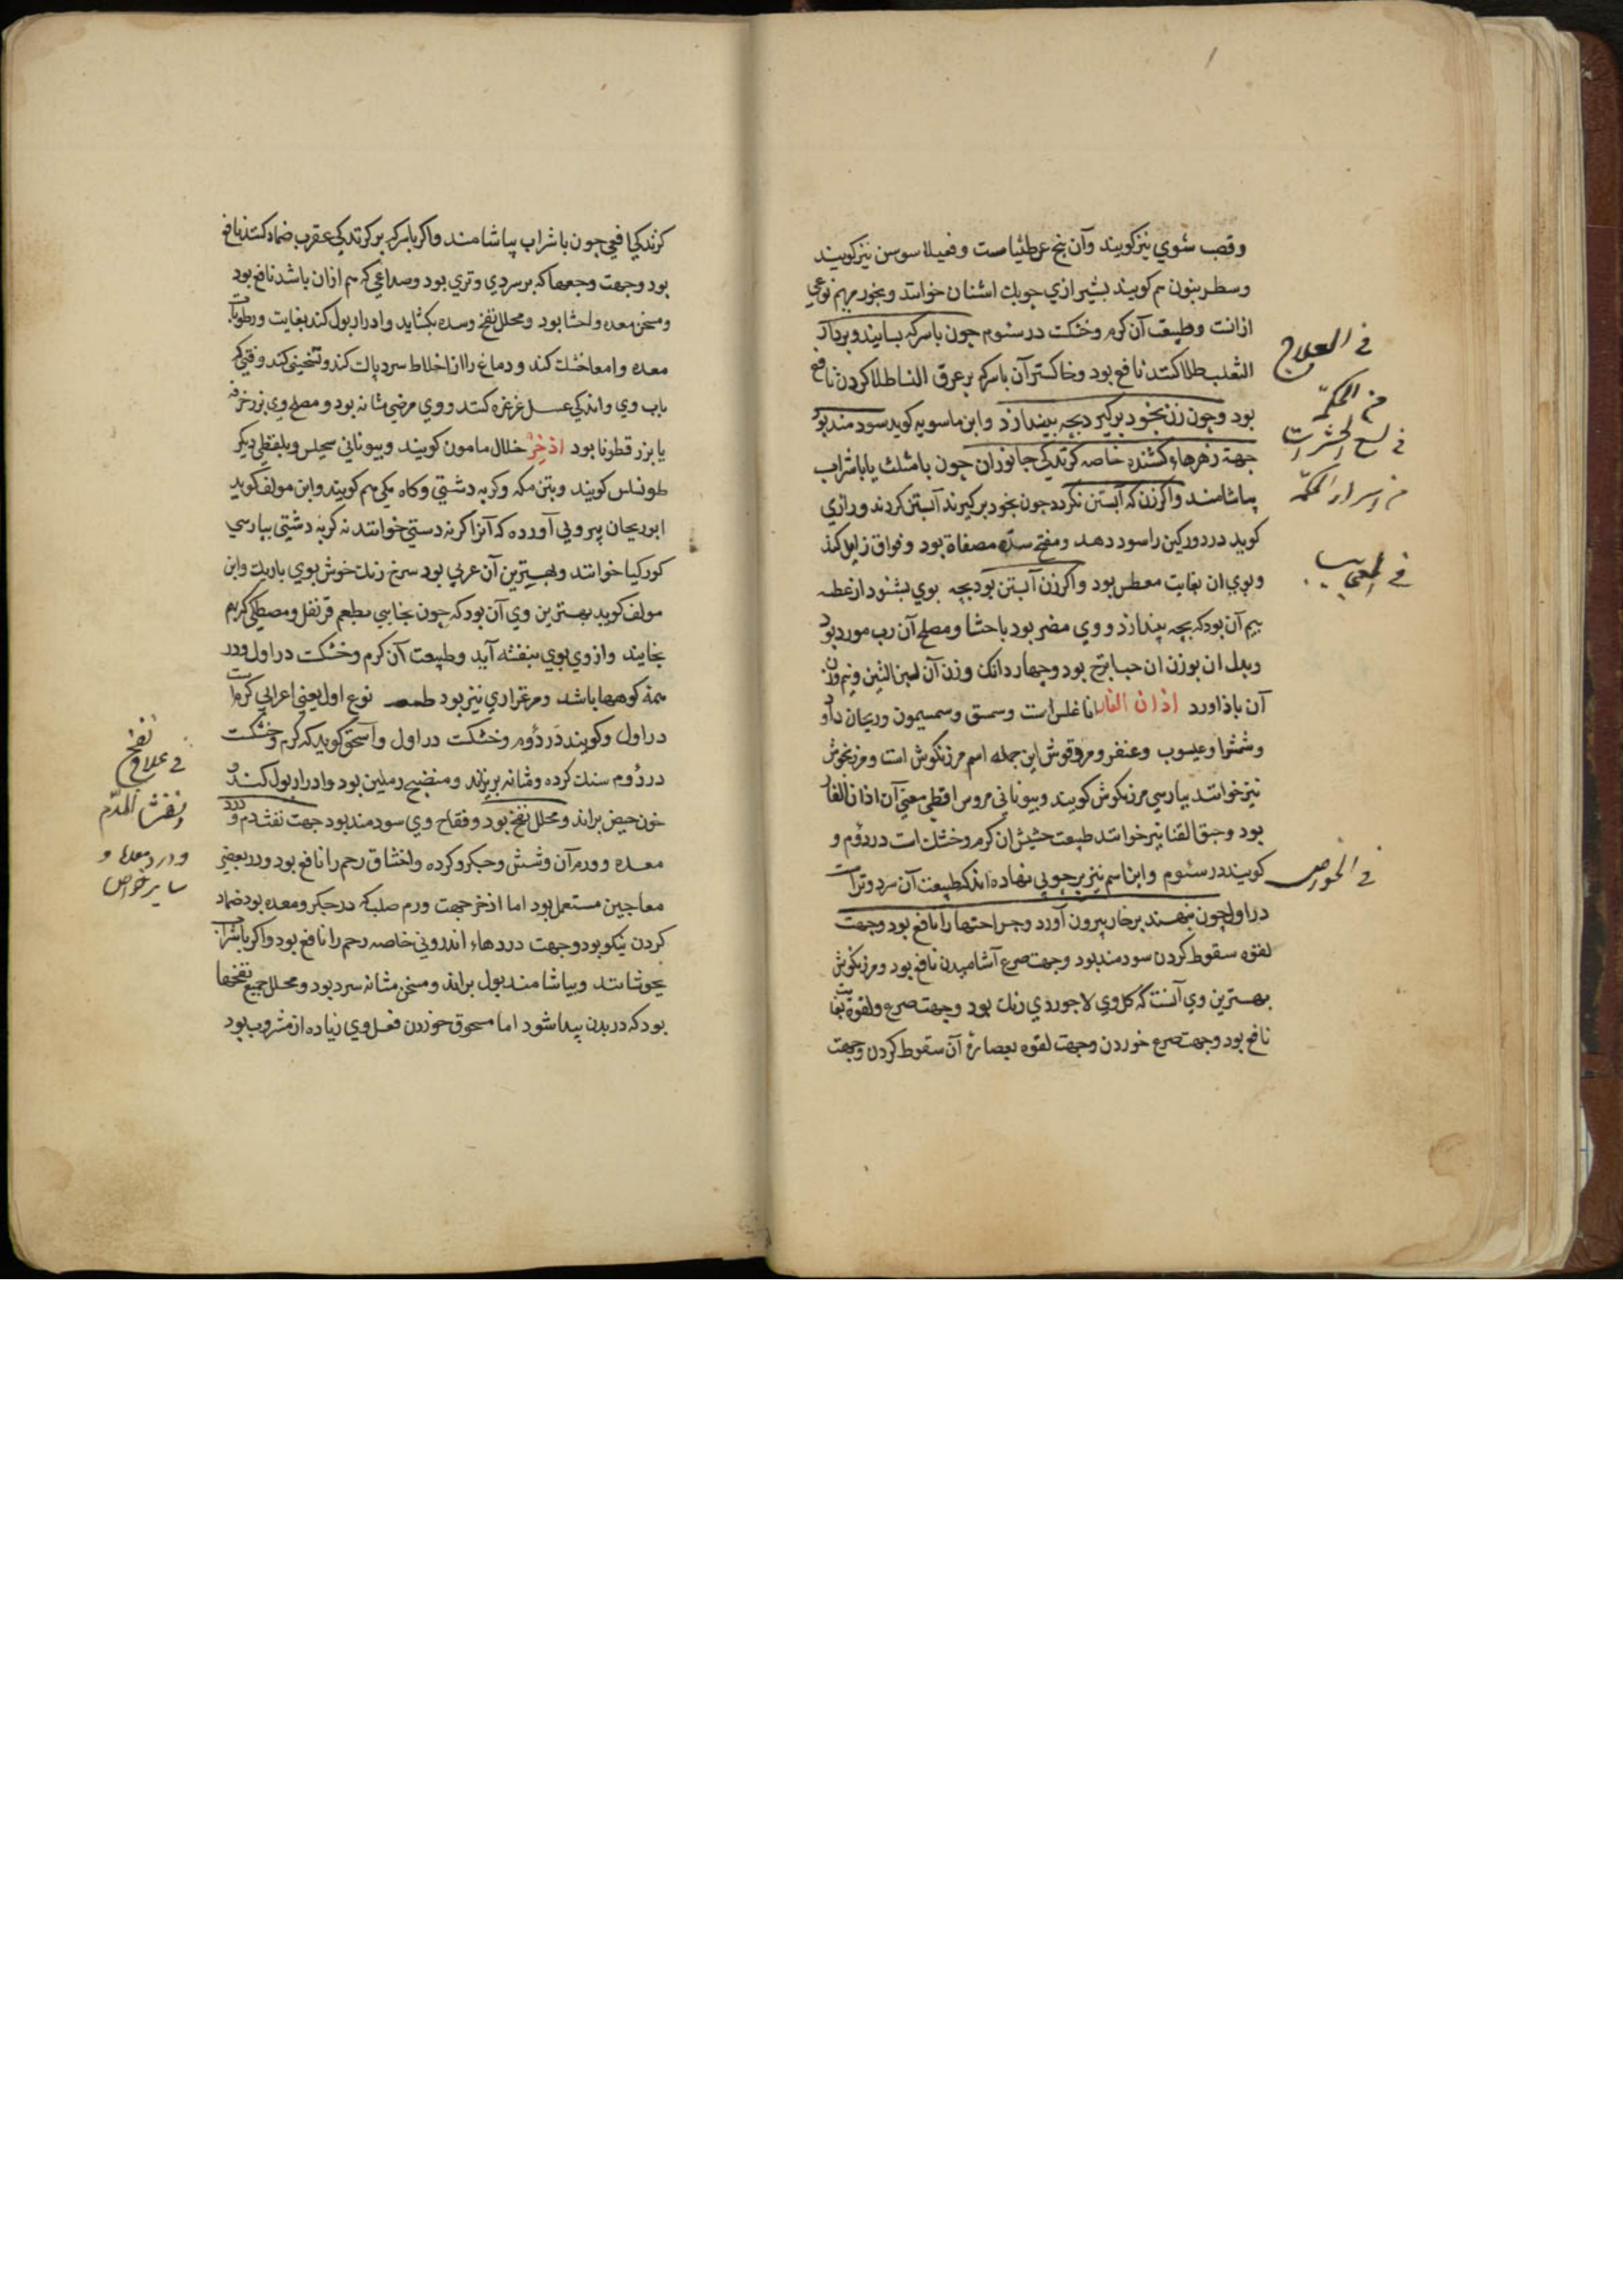 وقصب شوي نیز کویند وآن بیخ عرطنیا است و فمیلا سوسن نیز کویند
وسطرینون هم کویند بشیرازي چوبك اشنان خوانند و بخور مریم نوعي
ازانست وطبیعت آن کرم وخشکست درسئوم جون باسرکه بسایند وبرداء
الثعلب طلا کنند نافع بود وخاکستر آن باسرکه برعرق النسا طلا کردن نافع
بود وجون زن بخود برکیرد بجه بیندازد وابن ماسویه کوید سودمند بود
جهة زهرهاء کشنده خاصه کزندکي جانوران جون بامثلث یا باشراب
بیاشامند واکر زن که آبستن نکردد جون بخود برکیرند آبستن کردند ورازي
کوید درد ورکین را سود دهد ومفتح سده مصفاة بود وفواق زایل کند
وبوي ان بغایت معطس بود واکر زن آبستن بود بجه بوي بشنود ازعطسه
بیم آن بود که بچه بیندازد ووي مضر بود باحشا ومصلح آن رب مورد بود
وبدل ان بوزن ان حب اترج بود وچهار دانك وزن آن لبن التین ونیم وزن
آن باذاورد اذان الفار اناغلس است وسمسق وسمسیمون وریحان داود
وشمشرا وعیسوب وعنقر ومردقوش این جمله اسم مرزنکوش است ومرزنجوش
نیز خوانند بپارسي مرزنکوش کویند وبیوناني مروس اقطي معني آن اذان الفار
بود وحبق القنا نیز خوانند طبیعت حشیش ان کرم وخشك است دردوم و
کویند درسئوم واین اسم نیز برچوبي نهاده اند که طبیعت آن سرد وتراست
در اول چون بنهند برخار بیرون آورد وجراحتها را نافع بود وجهت
لقوه سقوط کردن سودمند بود وجهت صرع آشامیدن نافع بود ومرزنکوش
بهترین وي آنست که کل وي لاجوردي رنك بود وجهت صرع ولقوه بغایت
نافع بود وجهت صرع خوردن وجهت لقوه بعصارۀ آن سقوط کردن وجهت
في العلاج
من الحکمة
في لسع الحشرات
من اسرار الحکمة
في العجایب
في الخواص
کزندکي افعي جون باشراب بیاشامند واکر باسرکه برکزندکي عقرب ضماد کنند نافع
بود وجهت وجعها که بر سردي وتري بود وصداعي که هم ازان باشد نافع بود
ومسخن معده واحشا بود ومحلل نفخ وسده بکشاید وادرار بول کند بغایت ورطوبات
معده وامعا خشك کند ودماغ را از اخلاط سرد پاك کند وتسخین کند وقتي که
بآب وي واندکي عسل غرغره کنند ووي مرضي مثانه بود ومصلح وي بزر خرفه
یا بزر قطونا بود اذخر خلال مامون کویند وبیوناني سحیلس وبلفظي دیکر
طونلس کویند وبتن مکه وکربه دشتي وکاه مکي هم کویند وابن مولف کوید
ابوریحان بیروني آورده که آنرا کربه دستي خوانند نه کربه دشتي بپارسي
کورکیا خوانند وبهترین آن عربي بود سرخ رنك خوش بوي باریك وابن
مولف کوید بهترین وي آن بود که چون بخایي بطعم قرنفل ومصطکي کرهم
بخایند وازوي بوي بنفشه آید وطبیعت آن کرم وخشکت دراول ودر
همه کوهها باشد ومرغزاري نیز بود طبع نوع اول یعني اعرابي کرم است
در اول وکویند دردوم وخشکت در اول واسحق کوید که کرم وخشکت
دردوم سنك کرده ومثانه بریزاند ومنضج وملین بود وادرار بول کند و
خون حیض براند ومحلل نفخ بود وفقاح وي سودمند بود جهت نفث دم ودرد
معده وورم آن وشش وجکر وکرده واختناق رحم را نافع بود ودر بعضي
معاجین مستعمل بود اما اذخر جهت ورم صلب که درجکر ومعده بود ضماد
کردن نیکو بود وجهت دردهاء اندروني خاصه رحم را نافع بود واکر باشراب
بجوشانند وبیاشامند بول براند ومسخن مثانه سرد بود ومحلل جمیع نفخها
بود که در بدن پیدا شود اما مسحوق خوردن فعل وي زیاده از مشروب بود
نفخ
في علاج
ونفث الدم
ودرد معدها و
سایر خواص